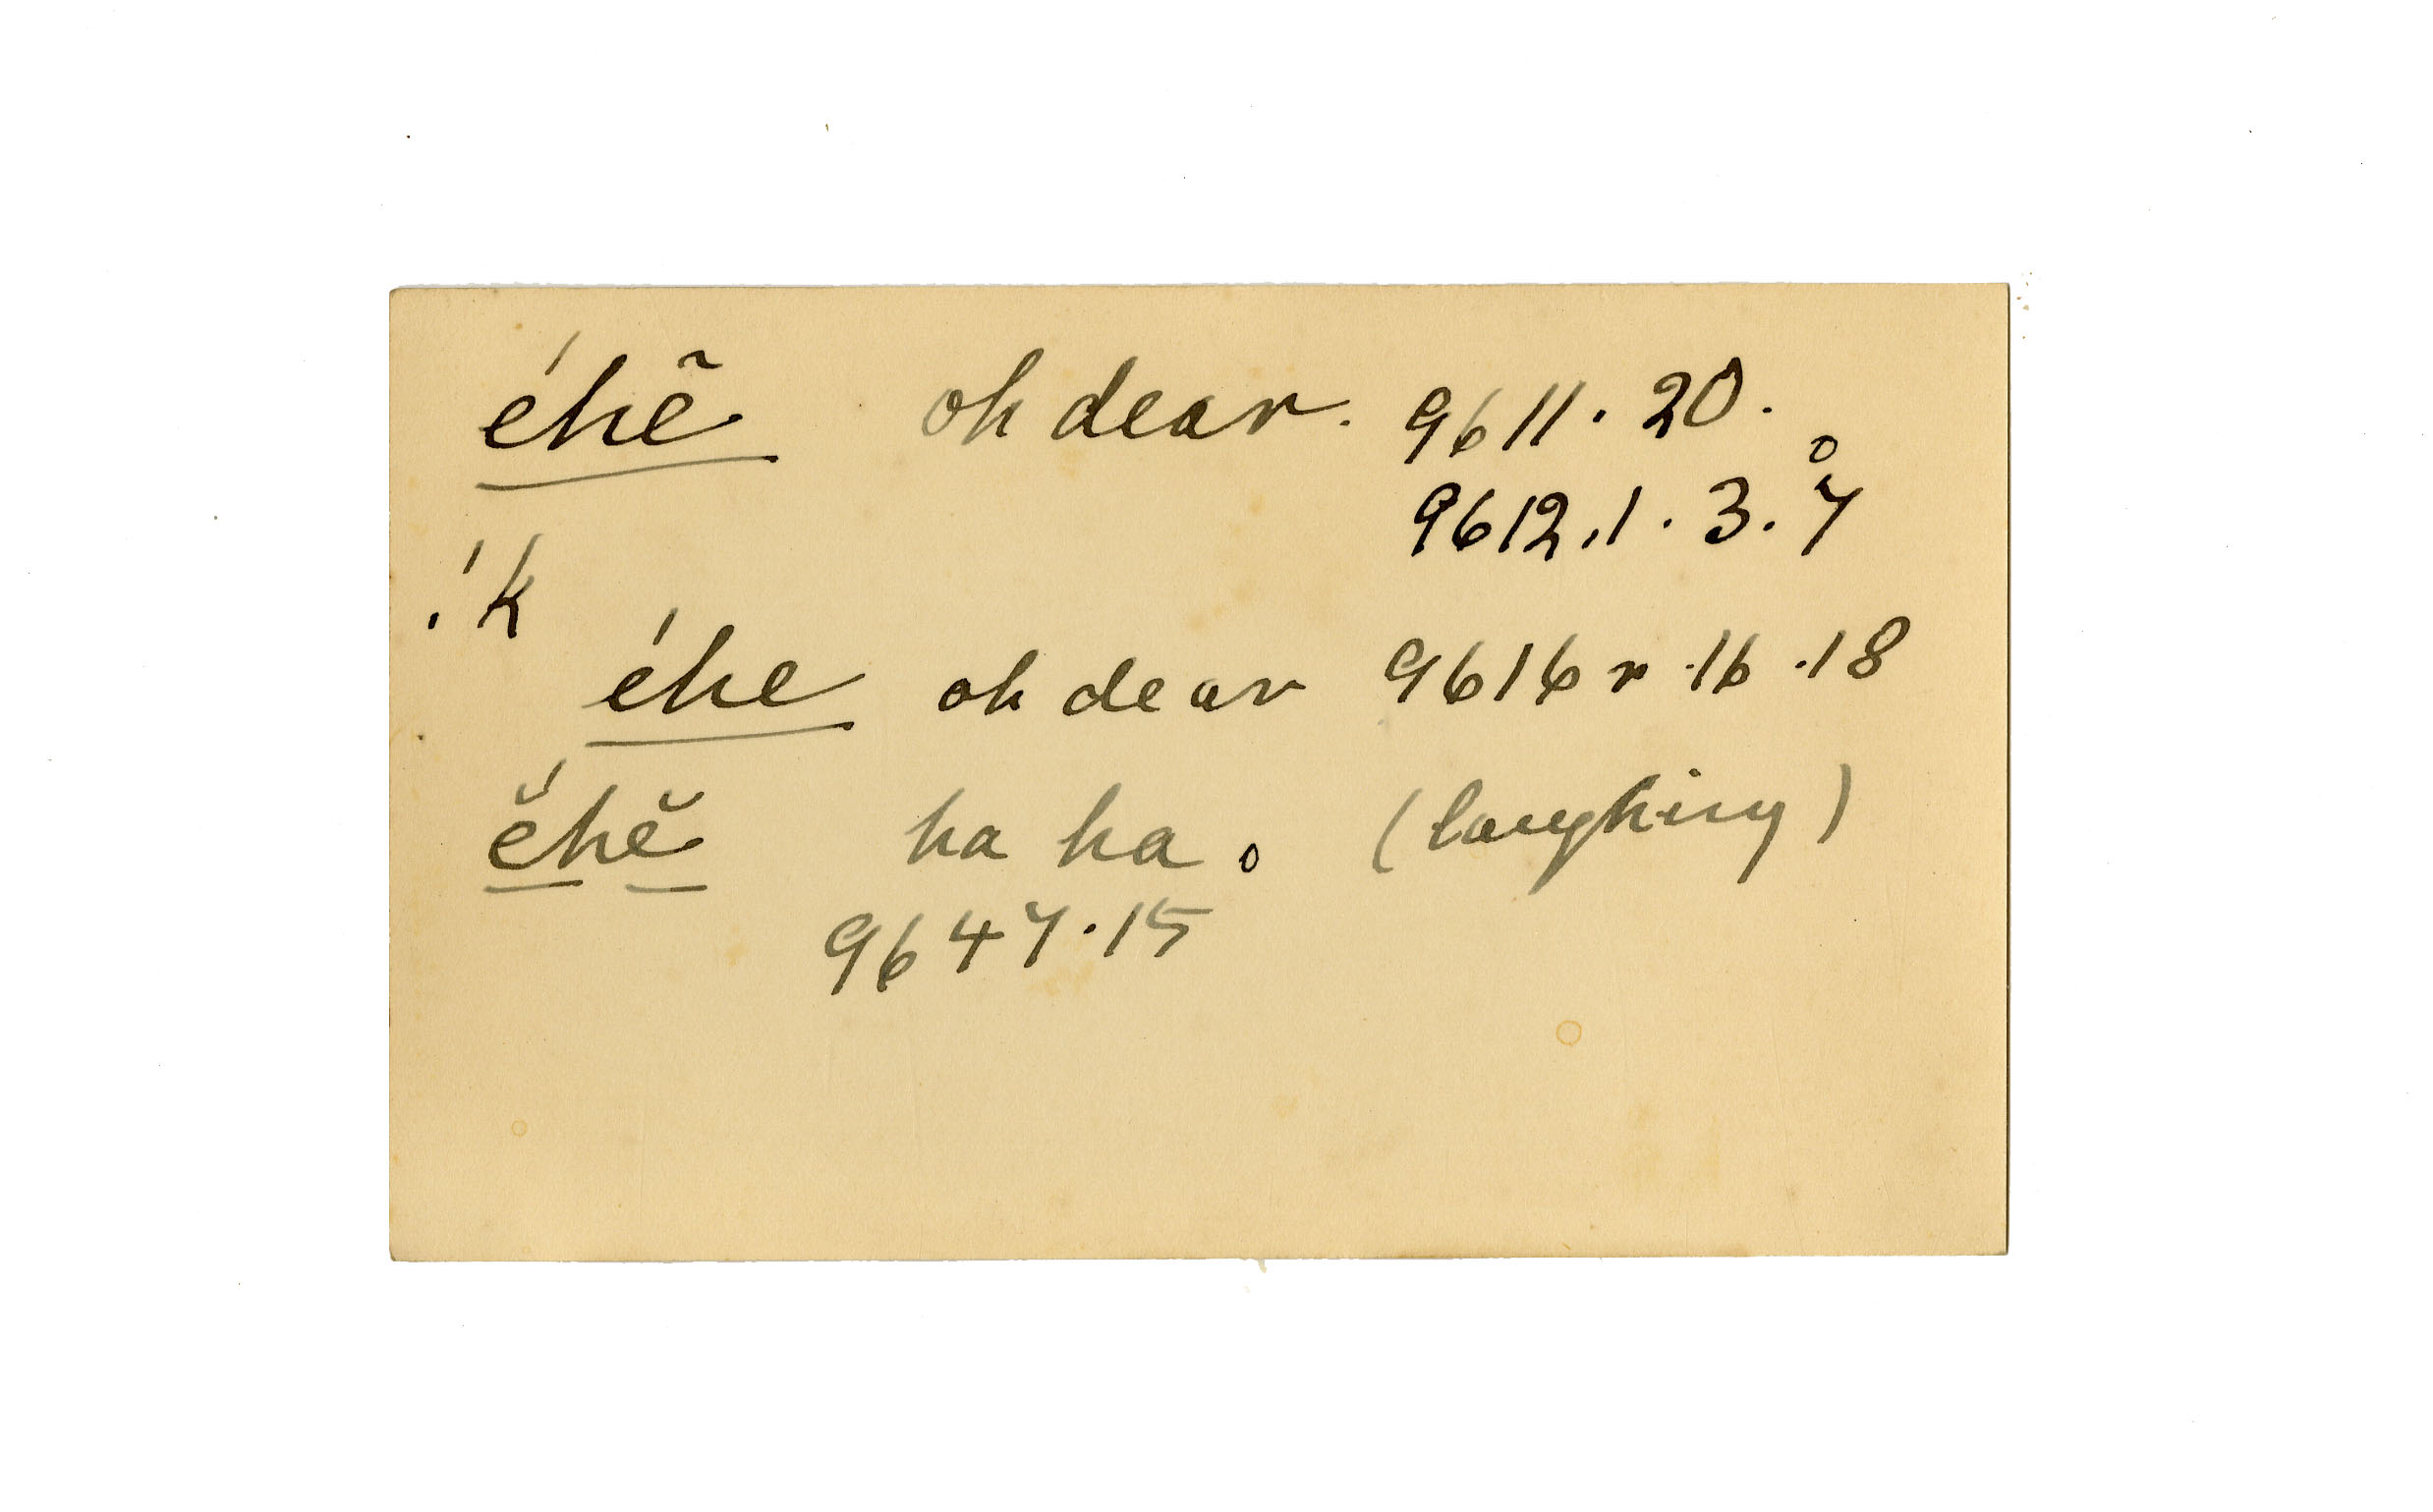 éhẽ oh dear. 9611. 20.
9612.1. 3. 7
!k
éhe oh dear 9616 r .16 .18
ĕ́hĕ ha ha. (laughing)
9647.15